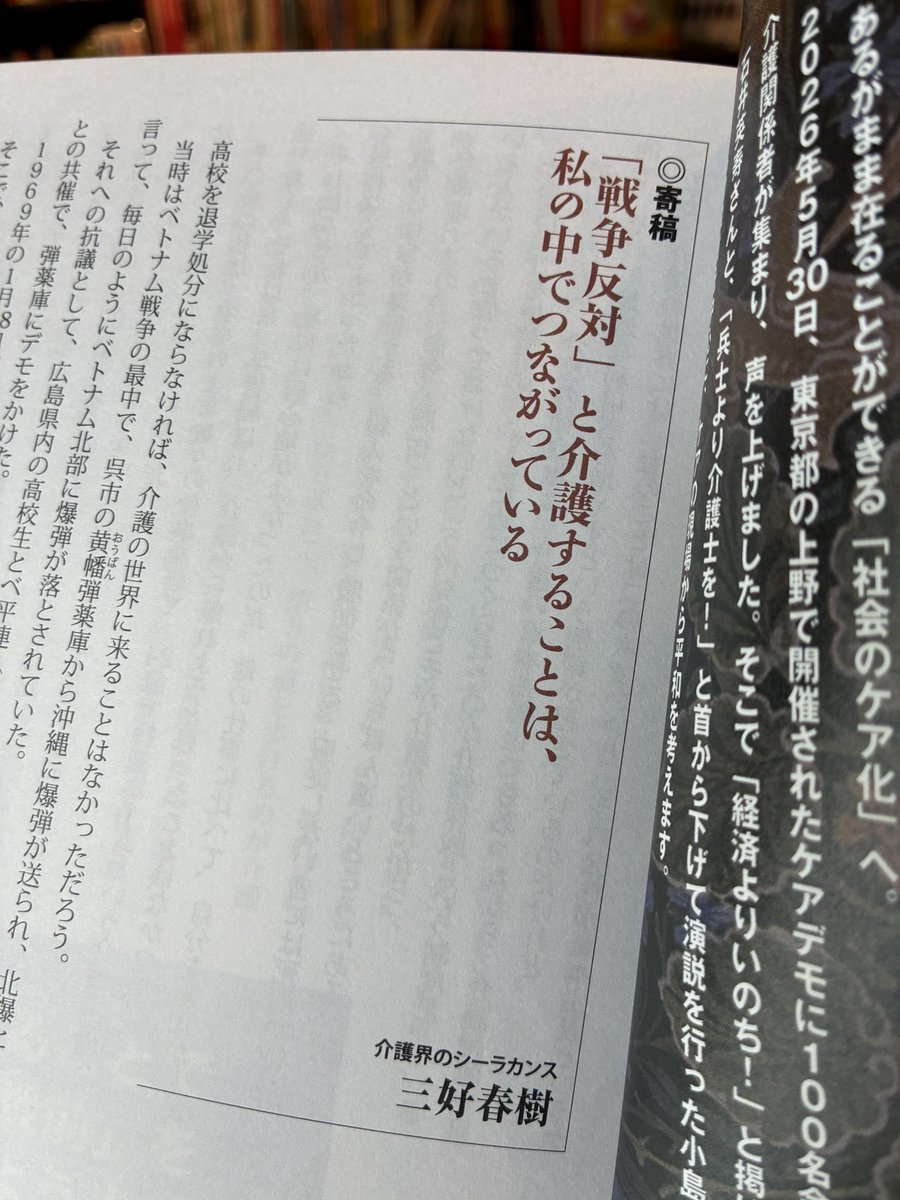 あるがまま在ることができる「社会のケア化」へ。
2026年5月30日、東京都の上野で開催されたケアデモに100名
介護関係者が集まり、声を上げました。そこで「経済よりいのち!」と掲
石井英寿さんと、「兵士より介護士を!」と首から下げて演説を行った小島
現場から平和を考えます。
◎寄稿
「戦争反対」と介護することは、
私の中でつながっている
介護界のシーラカンス
三好春樹
高校を退学処分にならなければ、介護の世界に来ることはなかっただろう。
当時はベトナム戦争の最中で、呉市の黄幡弾薬庫から沖縄に爆弾が送られ、北爆と
おうばん
言って、毎日のようにベトナム北部に爆弾が落とされていた。
それへの抗議として、広島県内の高校生とベ平連
との共催で、弾薬庫にデモをかけた。
1969年の1月8日
そこで、